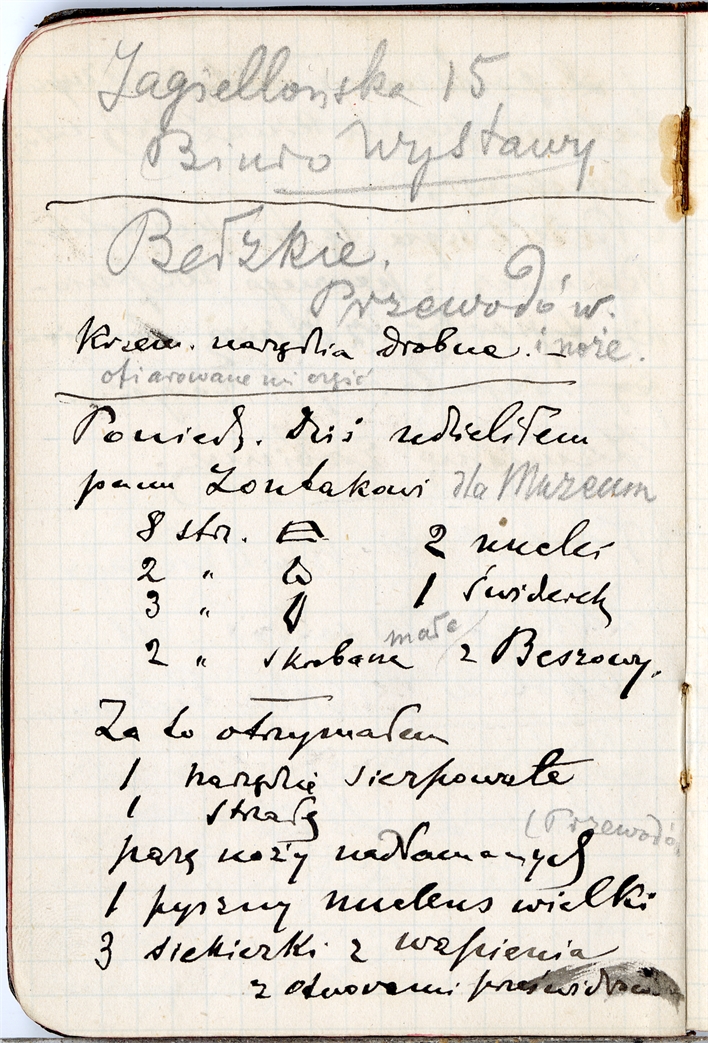 Jagiellońska 15
Biuro Wystawy
Bełzkie.
Przewodów.
Krzem. narzędzia drobne. – i noże.
ofiarowane mi część
Poniedz. Dziś udzieliłem
panu Żontakowi dla Muzeum
8 strz. 2 nuclei
2 "
3 " 1 świderek
2 " skrobane małe z Beszowy.
Za to otrzymałem
1 narzędzie sierpowate
1 strzałę
parę noży nadłamanych (Przewodó
1 pyszny nucleus wielki
3 siekierki z wapienia
z otworami